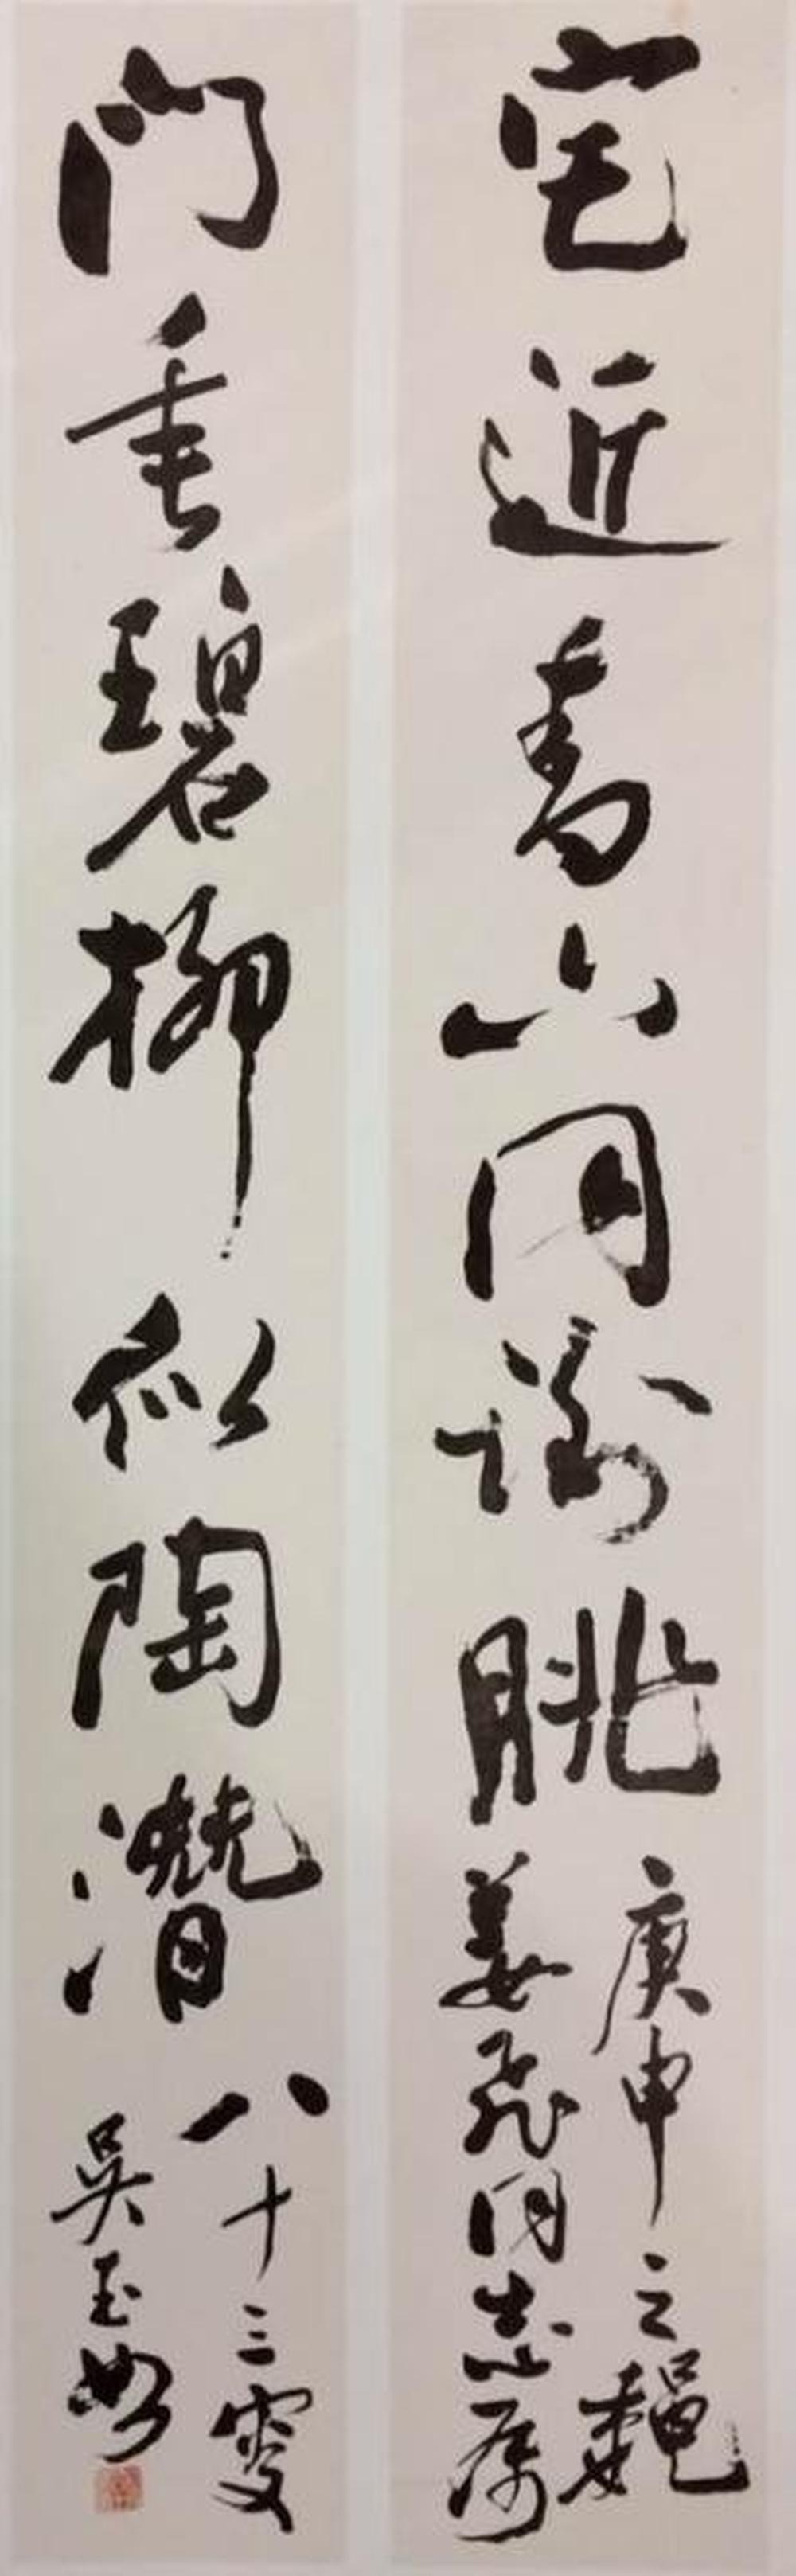 宅近青山同谢朓
庚申之
姜飛同志属
门垂碧柳似陶潜
八十三叟
吴玉如